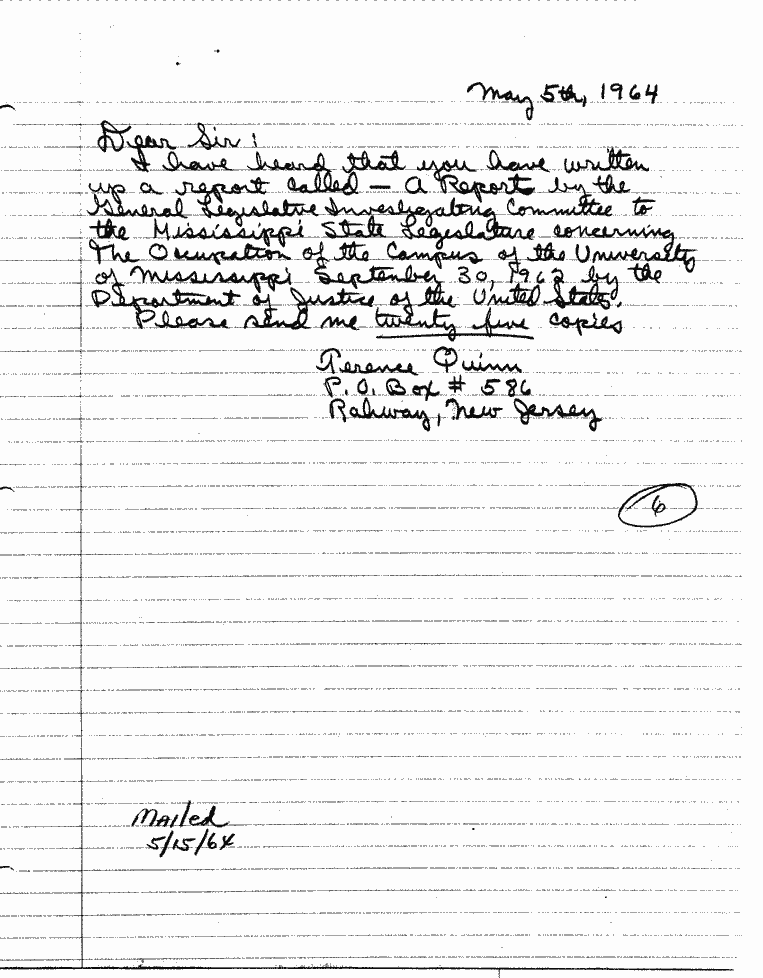 May 5th, 1964
Dear Sir:
I have heard that you have written
up a report called — A Report by the
General Legislative Investigating Committee to
the Mississippi State Legislature concerning
The Occupation of the Campus of the University
of Mississippi September 30, 1962 by the
Department of Justice of the United States.
Please send me twenty five copies
Terence Quinn
P.O. Box # 586
Rahway, New Jersey
6
Mailed
5/15/64